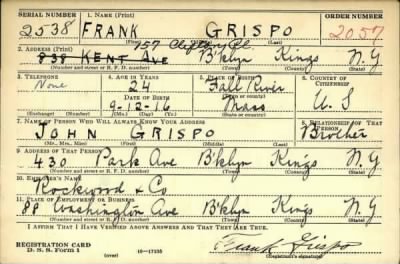 SERIAL NUMBER 1. NAME (Print) ORDER NUMBER
2538 FRANK GRISPO 2057
(First) (Middle) (Last)
257 Clifton Pl.
2. ADDRESS (Print)
838 KENT AVE B'klyn Kings N.Y
(Number and street or R. F. D. number) (Town) (County) (State)
3. TELEPHONE 4. AGE IN YEARS 5. PLACE OF BIRTH 6. COUNTRY OF CITIZENSHIP
None 24 Fall River
DATE OF BIRTH U.S
9-12-16 Mass
(Exchange) (Number) (Mo.) (Day) (Yr.) (State or country)
7. NAME OF PERSON WHO WILL ALWAYS KNOW YOUR ADDRESS 8. RELATIONSHIP OF THAT PERSON
JOHN GRISPO Brother
(Mr., Mrs., Miss) (First) (Middle) (Last)
9. ADDRESS OF THAT PERSON
430 Park Ave B'klyn Kings N.Y
(Number and street or R. F. D. number) (Town) (County) (State)
10. EMPLOYER'S NAME
Rockwood & Co
11. PLACE OF EMPLOYMENT OR BUSINESS
88 Washington Ave B'klyn Kings N.Y
(Number and street or R. F. D. number) (Town) (County) (State)
I AFFIRM THAT I HAVE VERIFIED ABOVE ANSWERS AND THAT THEY ARE TRUE.
REGISTRATION CARD
D. S. S. FORM 1 (over) 16-17105 Frank Grispo